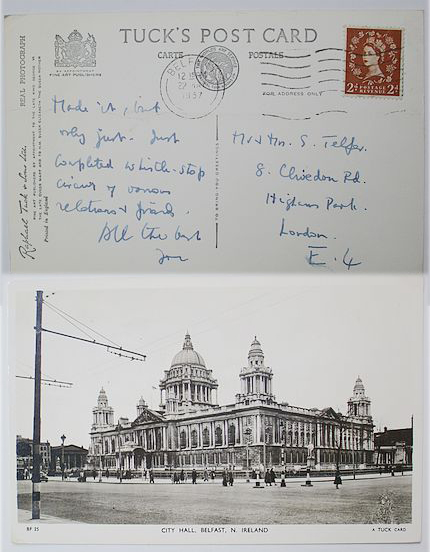 TUCK'S POST CARD
CARTE POSTALE
BY APPOINTMENT
FINE ART PUBLISHERS
REAL PHOTOGRAPH
FOR ADDRESS ONLY
BELFAST
1957
2D POSTAGE REVENUE 2D
Made it, but
only just. Just
completed whistle-stop
circuit of various
relations & friends.
All the best
Mr & Mrs. S. Telfer.
8. Clivedon Rd.
Highams Park.
London.
E. 4
TO BRING YOU GREETINGS
Raphael Tuck & Sons Ltd.
Printed in England
BF 25
CITY HALL, BELFAST, N. IRELAND
A TUCK CARD